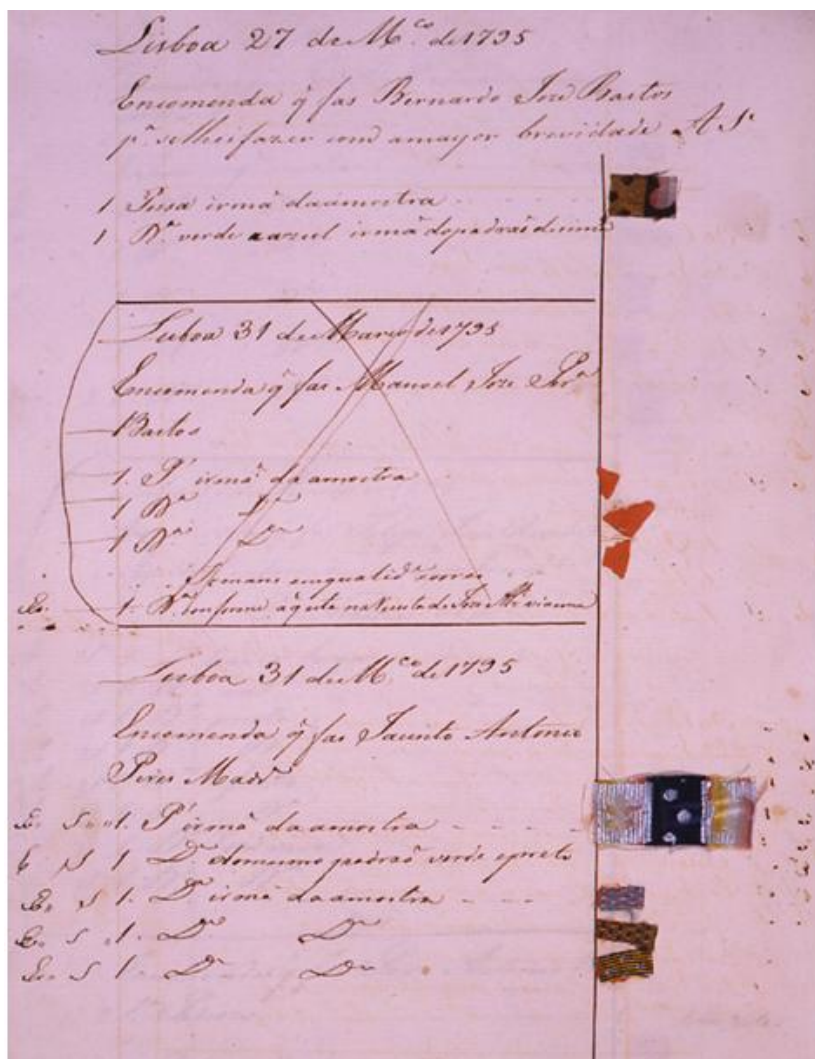 Lisboa 27 de M.co de 1795
Encomenda q̃ fas Bernardo Joze Bastos
p.a se lhe ifazer com amayor brevidade A S.
1 Pessa irmã da amostra
1 D.a verde e azul irmã do padraõ de sima
Lisboa 31 de Março de 1795
Encomenda q̃ fas Manoel Joze
Bastos
1. P.ª irmã da amostra
1 D.a D.a
1 D.a D.a
1. D.a conforme
Lisboa 31 de M.co de 1795
Encomenda q̃ fas Jacinto Antonio
Pires
S 1. P.ª irmã da amostra
S 1 D.a do mesmo padraõ verde e preto
S 1. D.a irmã da amostra
S 1. D.a D.a
S 1. D.a D.a